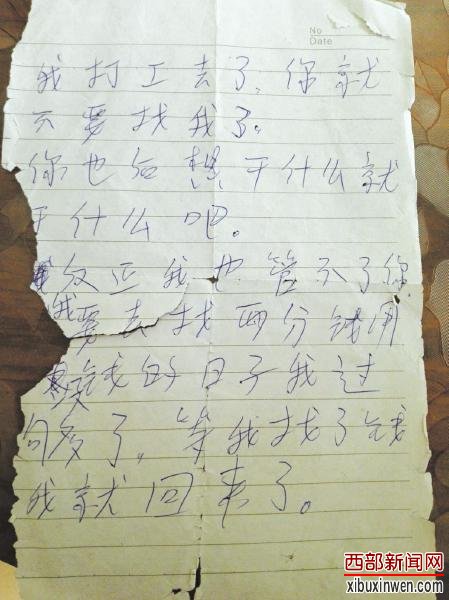 No
Date
我打工去了,你就
不要找我了。
你也后想干什么就
干什么吧。
反正我也管不了你
我要去找两分钱用
没钱的日子我过
句多了,等我找了钱
我就回来了。
西部新闻网
xibuxinwen.com